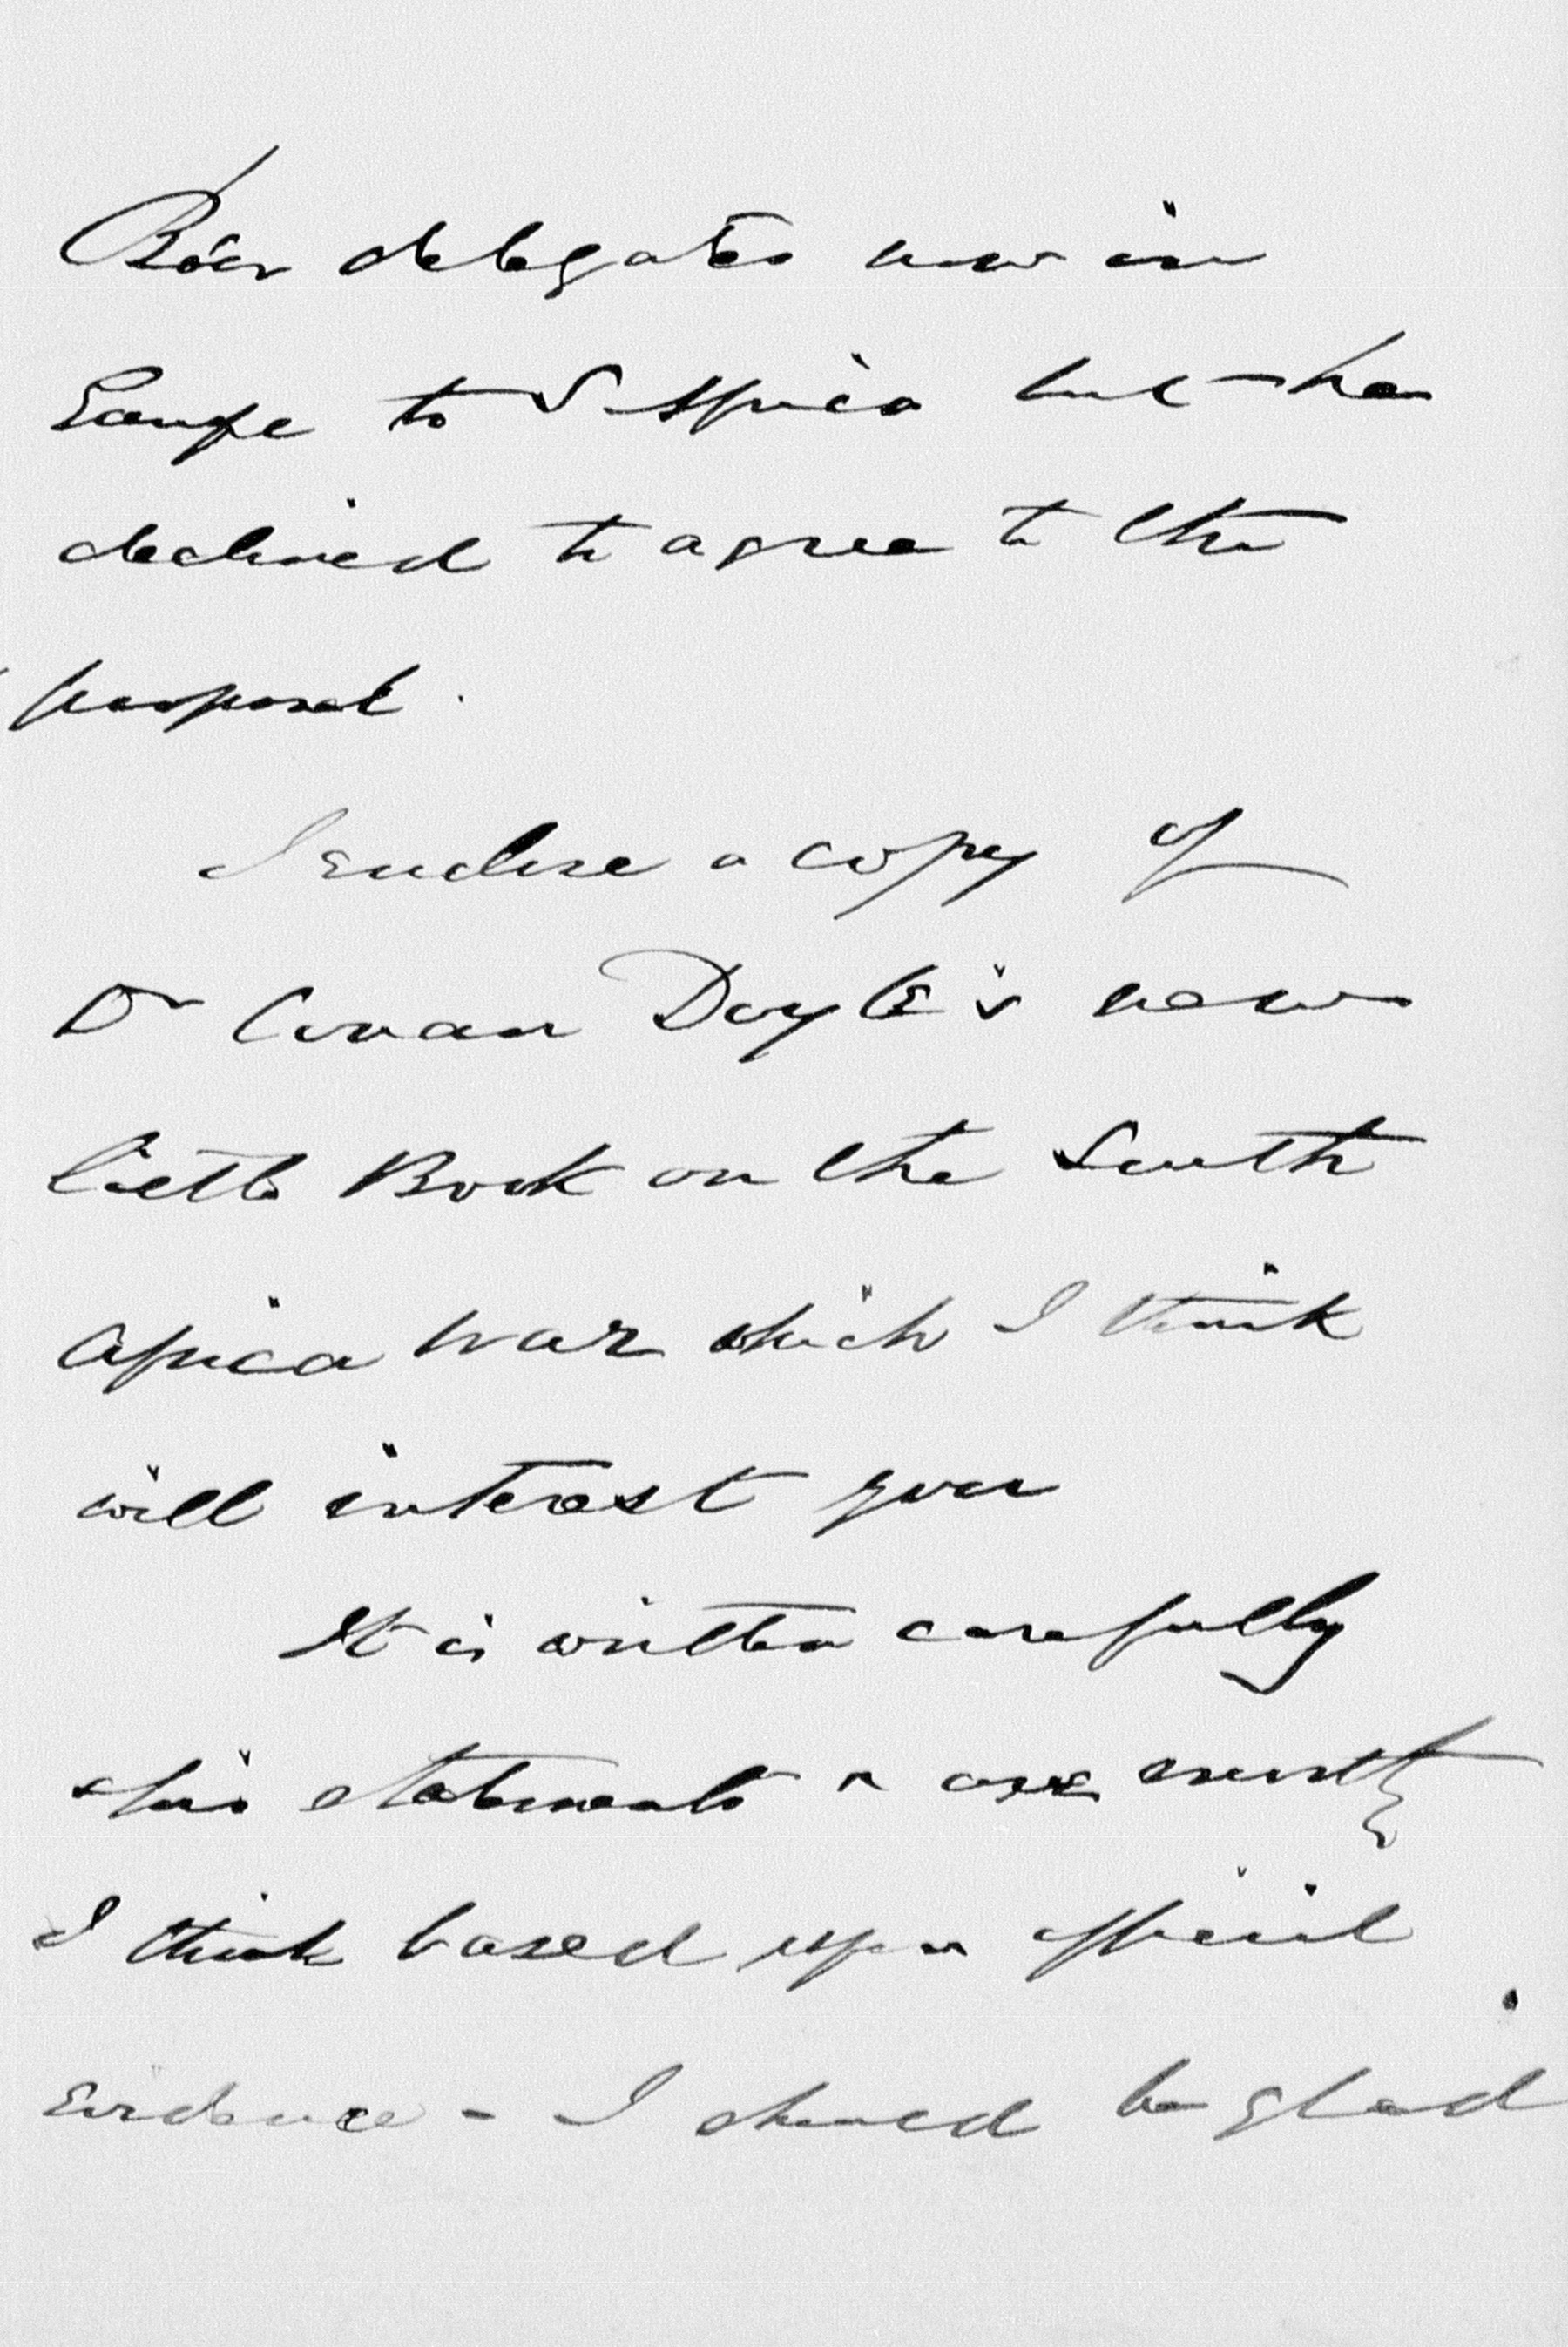 Boer delegates now in
Europe to S. Africa but has
declined to agree to the
proposal.
I enclose a copy of
Dr Conan Doyle's new
little Book on the South
Africa War which I think
will interest you
It is written carefully
& his statements are mostly
I think based upon official
Evidence - I should be glad